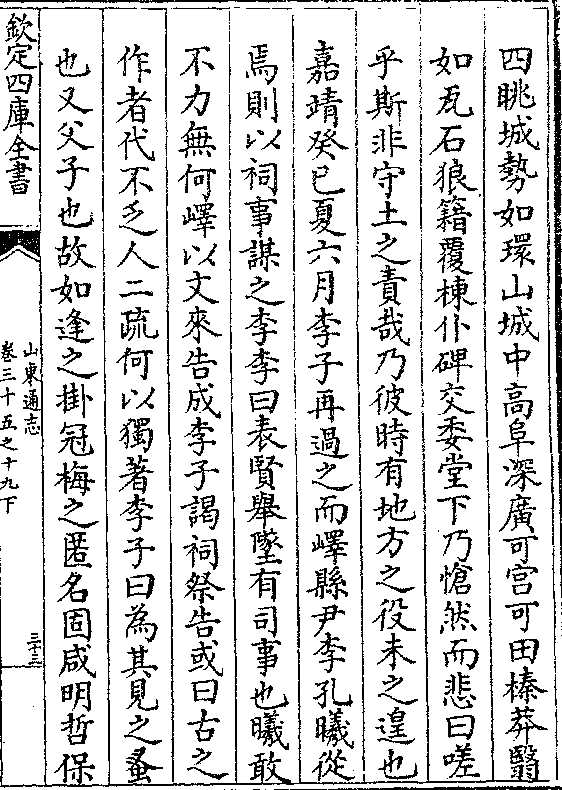 四眺城勢如環山城中高阜深廣可宫可田榛莽翳
如瓦石狼籍覆棟仆碑交委堂下乃愴然而悲曰嗟
乎斯非守土之責哉乃彼時有地方之役未之遑也
嘉靖癸巳夏六月李子再過之而嶧縣尹李孔曦從
焉則以祠事謀之李李曰表賢舉墜有司事也曦敢
不力無何嶧以文來告成李子謁祠祭告或曰古之
作者代不乏人二疏何以獨著李子曰為其見之蚤
也又父子也故如逢之掛冠梅之匿名固咸明哲保
欽定四庫全書
山東通志
卷三十五之十九下
三十三